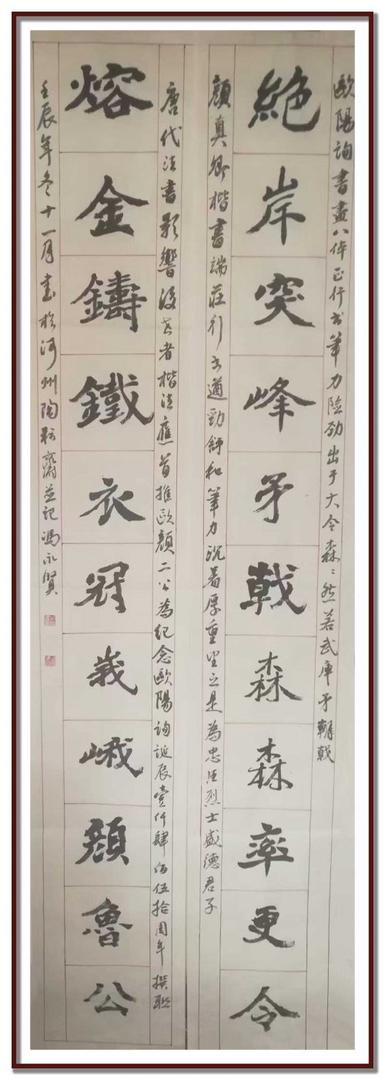 歐陽詢書盡八体正行書筆力險勁出于大令森森然若武庫矛戟
絕岸突峰矛戟森森率更令
顏真卿楷書端莊行書遒勁舒和筆力沉着厚重望之是為忠臣烈士盛德君子
唐代法書影響後世者楷法應首推歐顏二公為紀念歐陽詢誕辰壹仟肆佰伍拾周年撰聯
熔金鑄鐵衣冠峩峨顏魯公
壬辰年冬十一月書於河州陶齋並記馮永賢